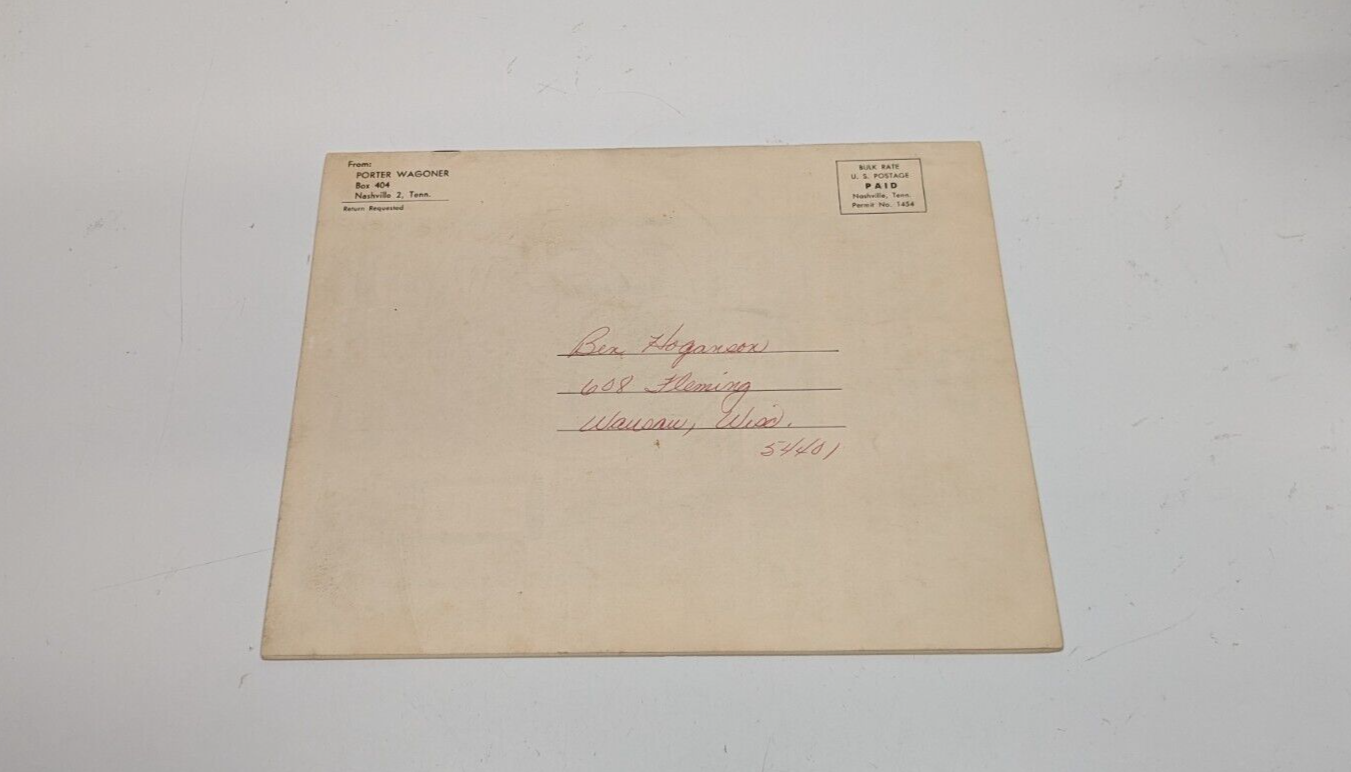 From:
PORTER WAGONER
Box 404
Nashville 2, Tenn.
Return Requested
BULK RATE
U. S. POSTAGE
PAID
Nashville, Tenn.
Permit No. 1454
Ben Hoganson
608 Fleming
Wausau, Wisc.
54401